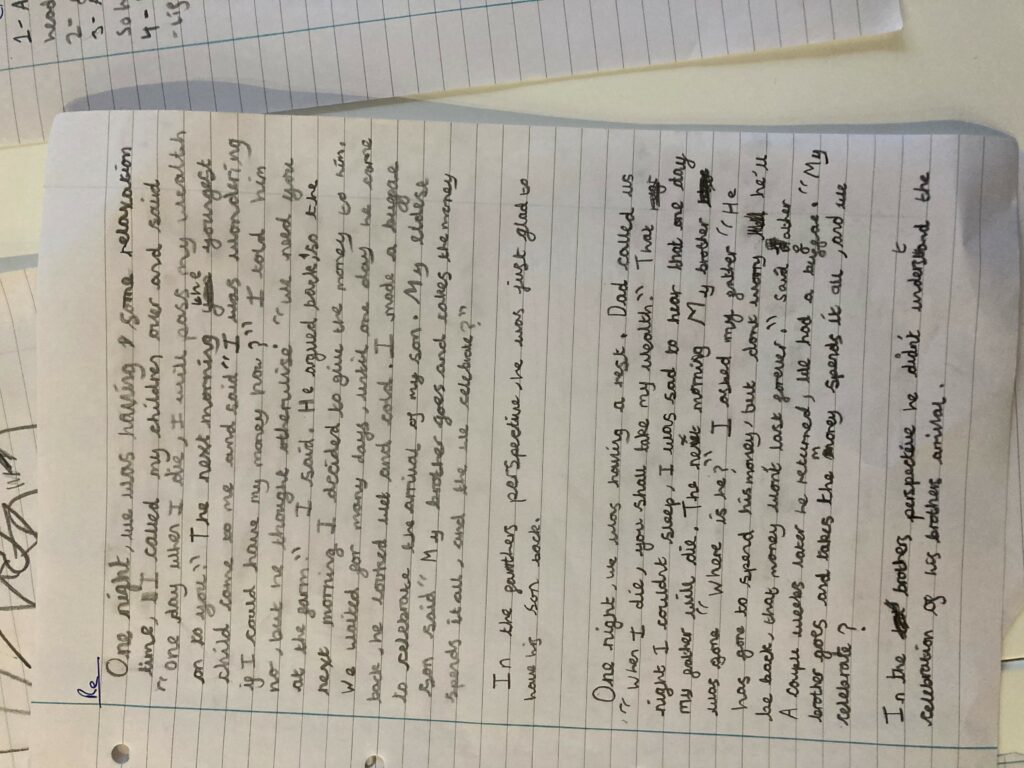 Re
One night, we was having some relaxation
time, I called my children over and said
"One day when I die, I will pass my wealth
on to you" The next morning the youngest
child came to me and said "I was wondering
if I could have my money now?" I told him
no, but he thought otherwise "we need you
at the farm" I said. He argued back, so the
next morning I decided to give the money to him.
We waited for many days, until one day he came
back, he looked wet and cold. I made a buffae
to celebrate the arrival of my son. My eldest
son said "My brother goes and takes the money
spends it all, and the we celebrate?"
In the farthers perspective, he was just glad to
have his son back.
One night we was having a rest. Dad called us
"When I die, you shall take my wealth." That
night I couldn't sleep, I was sad to hear that one day
my father will die. The next morning My brother
was gone "Where is he?" I asked my father "He
has gone to spend his money, but dont worry he'll
be back, that money won't last forever." Said father
A couple weeks later he returned, we had a buffae. "My
brother goes and takes the money spends it all, and we
celebrate?
In the brothers perspective he didn't understand the
celebration of his brothers arrival.
1 - A
2 -
3 - A
4 -